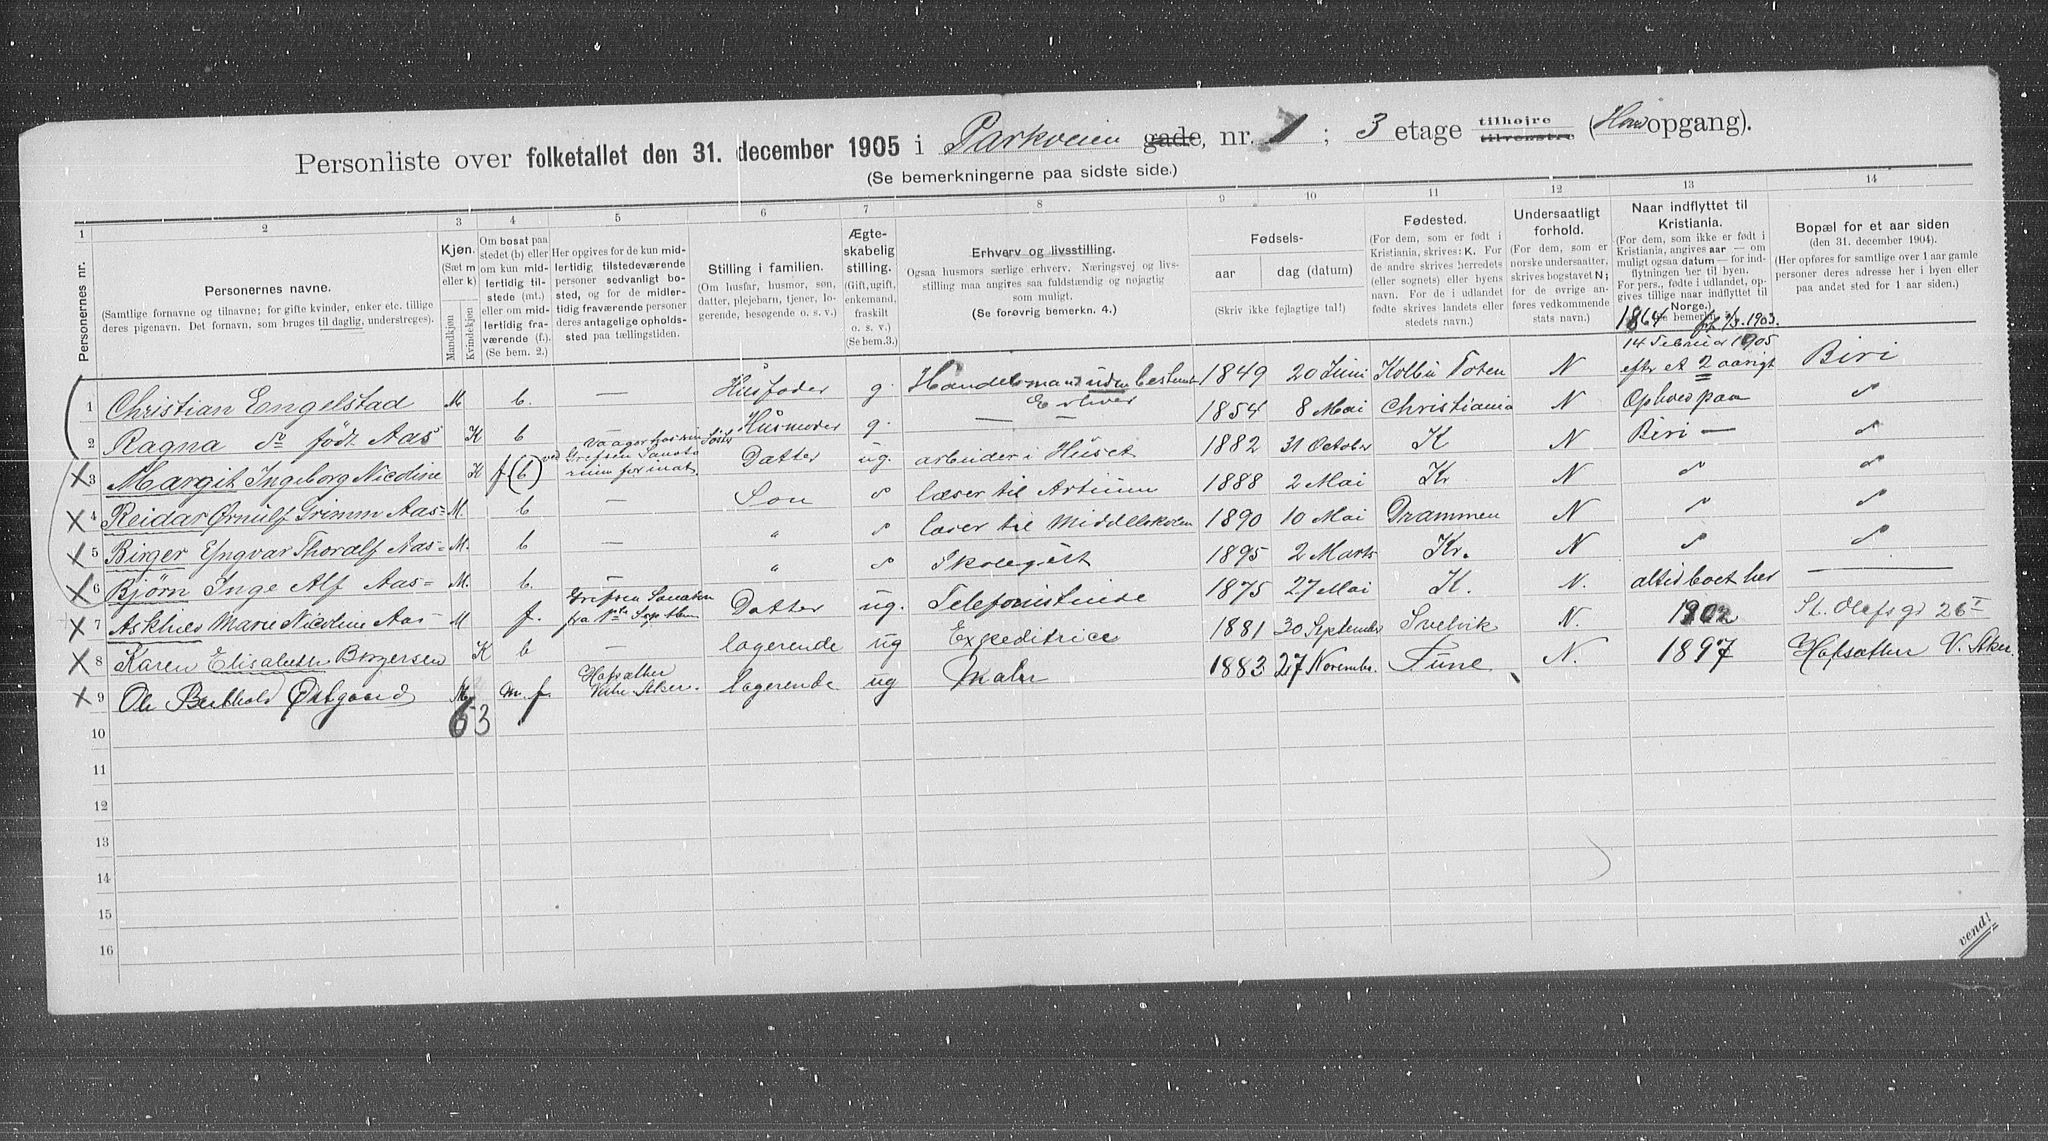 Personliste over folketallet den 31. december 1905 i Parkveien gade, nr. 1 ; 3 etage tilhøjre tilvenstre (Hovedopgang).
(Se bemerkningerne paa sidste side.)
1 2 3 4 5 6 7 8 9 10 11 12 13 14
Personernes nr.
Personernes navne.
(Samtlige fornavne og tilnavne; for gifte kvinder, enker etc. tillige
deres pigenavn. Det fornavn, som bruges til daglig, understreges).
Kjøn.
(Sæt m
eller k)
Mandkjøn
Kvindekjøn
Om bosat paa
stedet (b) eller
om kun mid-
lertidig til-
stede (mt.)
eller om mid-
lertidig fra-
værende (f.).
(Se bem. 2.)
Her opgives for de kun mid-
lertidig tilstedeværende
personer sedvanligt bo-
sted, og for de midler-
tidig fraværende personer
deres antagelige opholds-
sted paa tællingstiden.
Stilling i familien.
(Om husfar, husmor, søn,
datter, plejebarn, tjener, lo-
gerende, besøgende o. s. v.)
Ægte-
skabelig
stilling.
(Gift, ugift,
enkemand,
fraskilt
o. s. v.)
(Se bem. 3.)
Erhverv og livsstilling.
Ogsaa husmors særlige erhverv. Næringsvej og livs-
stilling maa angives saa fuldstændig og nøjagtig
som muligt.
(Se forøvrig bemerkn. 4.)
Fødsels-
aar dag (datum)
(Skriv ikke fejlagtige tal!)
Fødested.
(For dem, som er født i
Kristiania, skrives: K. For
de andre skrives herredets
(eller sognets) eller byens
navn. For de i udlandet
fødte skrives landets eller
stedets navn.)
Undersaatligt
forhold.
(For dem, som er
norske undersaatter,
skrives bogstavet N;
for de øvrige an-
føres vedkommende
stats navn.)
Naar indflyttet til
Kristiania.
(For dem, som ikke er født i
Kristiania, angives aar — om
muligt ogsaa datum — for ind-
flytningen her til byen.
For pers., fødte i udlandet, op-
gives tillige naar indflyttet til
Norge.)
1864 2/3 1903.
Bopæl for et aar siden
(den 31. december 1904).
(Her opføres for samtlige over 1 aar gamle
personer deres adresse her i byen eller
paa andet sted for 1 aar siden.)
1 Christian Engelstad M b. — Husfader g. Handelsmand uden bestemt Erhverv 1849 20 Juni Kolbu Toten N 14 Februar 1905 efter et 2 aarigt Biri
2 Ragna do født Aas K b Husmoder g. — — 1854 8 Mai Christiania N Ophold paa "
3 Margit Ingeborg Nicoline K f (b) Grefsen Sanatorium Datter ug. arbeider i Huset 1882 31 October K N Biri — "
4 Reidar Ørnulf Grimm Aas= M. b — Søn " læser til Artium 1888 2 Mai Kr N " "
5 Birger Yngvar Thoralf Aas= M. b — " " læser til Middelskolen 1890 10 Mai Drammen N " "
6 Bjørn Inge Alf Aas= M. b. — " " Skolegut 1895 2 Marts Kr. N " "
7 Askhild Marie Nicoline Aas= f. Grefsen Sanatm fra Septbr Datter ug. Telefonistinde 1875 27 Mai K. N. altid boet her —
8 Karen Elisabeth Borgersen K b — logerende ug Expeditrice 1881 30 September Svelvik N. 1902 St. Olafsgd 26 I
9 Ole Berthold Østgaard M m f. Hofsæther Vestre Aker. logerende ug Maler 1883 27 Novembr. Tune N. 1897 Hofsæther V. Aker.
10 6 3
11
12
13
14
15
16
vend!